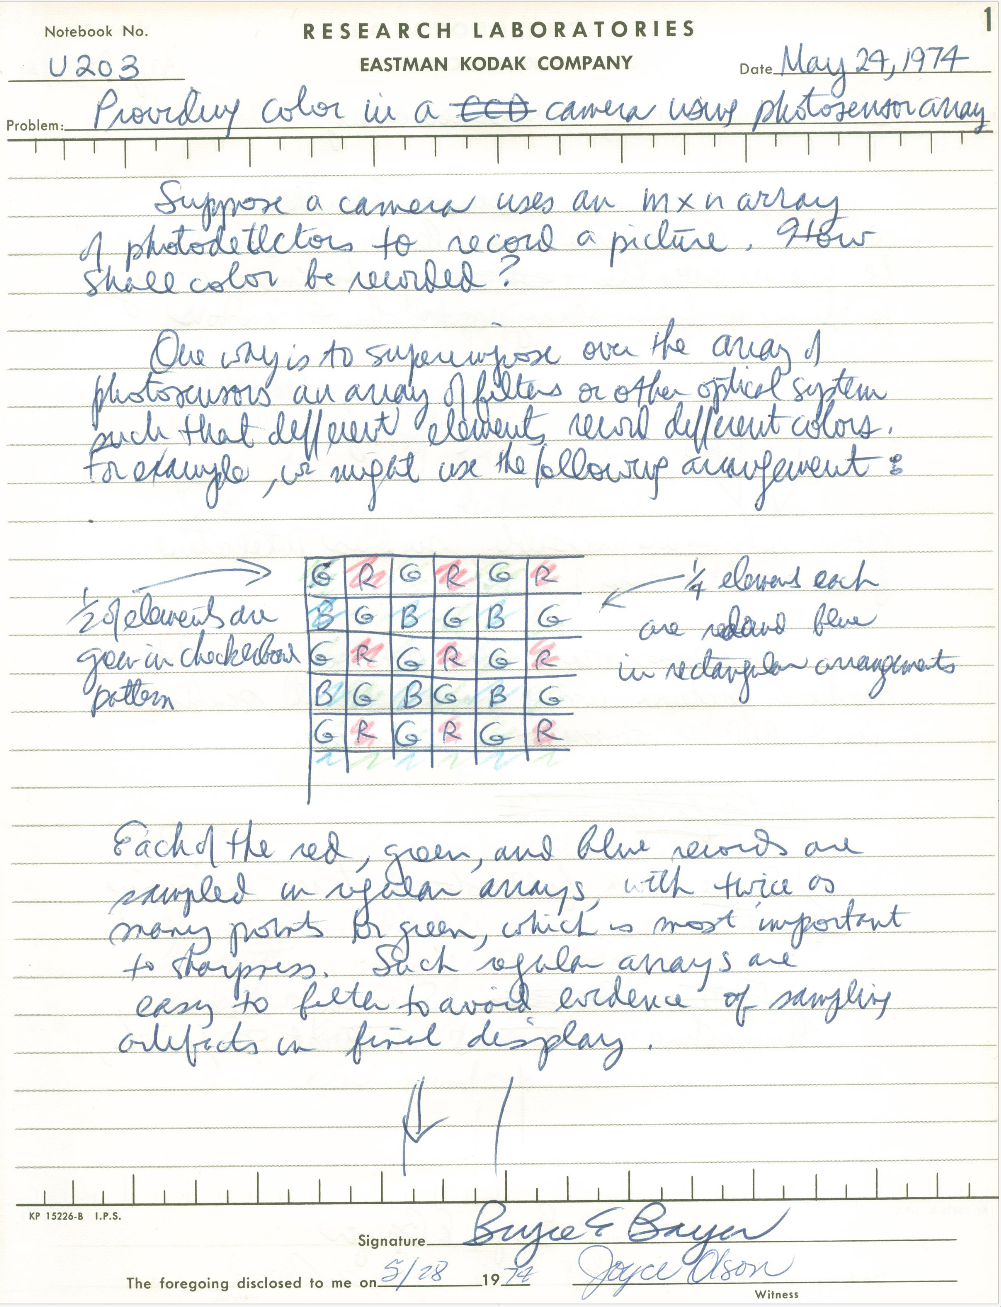 1
Notebook No.
RESEARCH LABORATORIES
U203
EASTMAN KODAK COMPANY
Date May 24, 1974
Problem: Providing color in a CCD camera using photosensor array
Suppose a camera uses an m x n array
of photodetectors to record a picture. How
shall color be recorded?
One way is to superimpose over the array of
photosensors an array of filters or other optical system
such that different elements record different colors.
For example, we might use the following arrangement:
½ of elements are
green in checkerboard
pattern
G R G R G R
B G B G B G
G R G R G R
B G B G B G
G R G R G R
¼ element each
are red and blue
in rectangular arrangements
Each of the red, green, and blue records are
sampled in regular arrays, with twice as
many points for green, which is most important
to sharpness. Such regular arrays are
easy to filter to avoid evidence of sampling
artifacts in final display.
KP 15226-B I.P.S.
Signature Bryce E Bayer
The foregoing disclosed to me on 5/28 1974 Joyce Olson
Witness